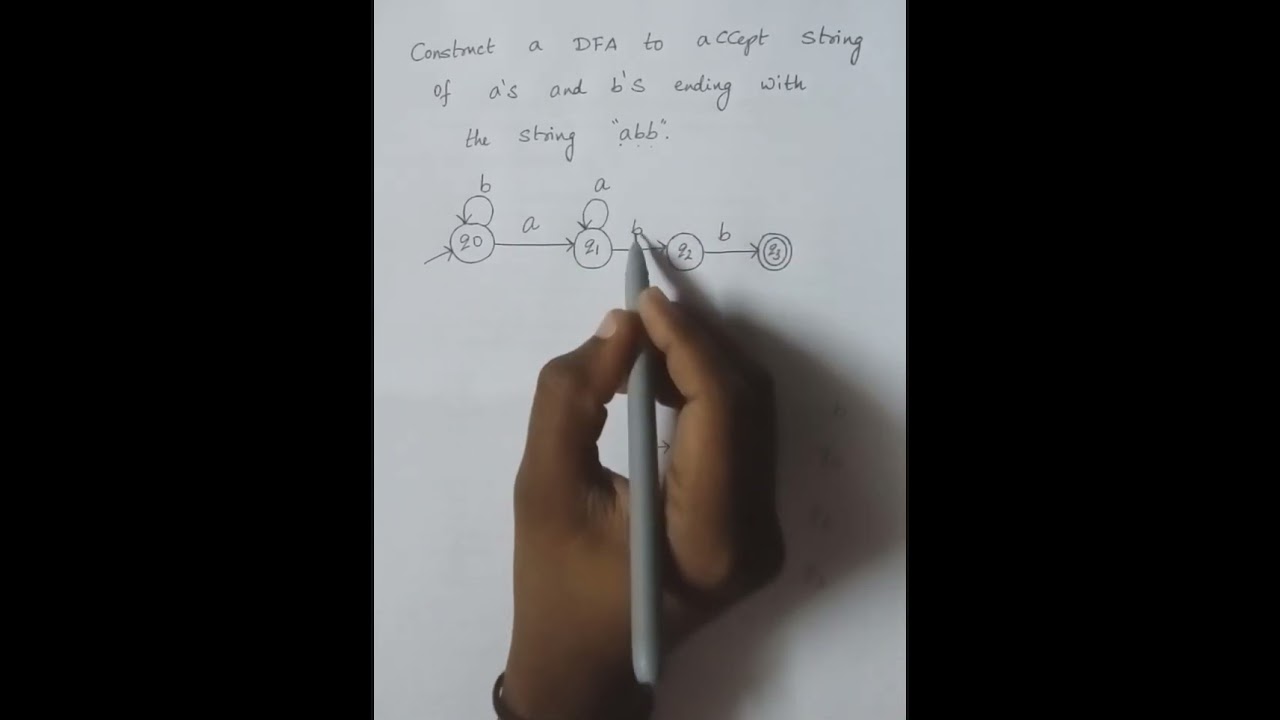 Construct a DFA to accept string
of a's and b's ending with
the string "abb".
b a
a b b
q0 q1 q2 q3